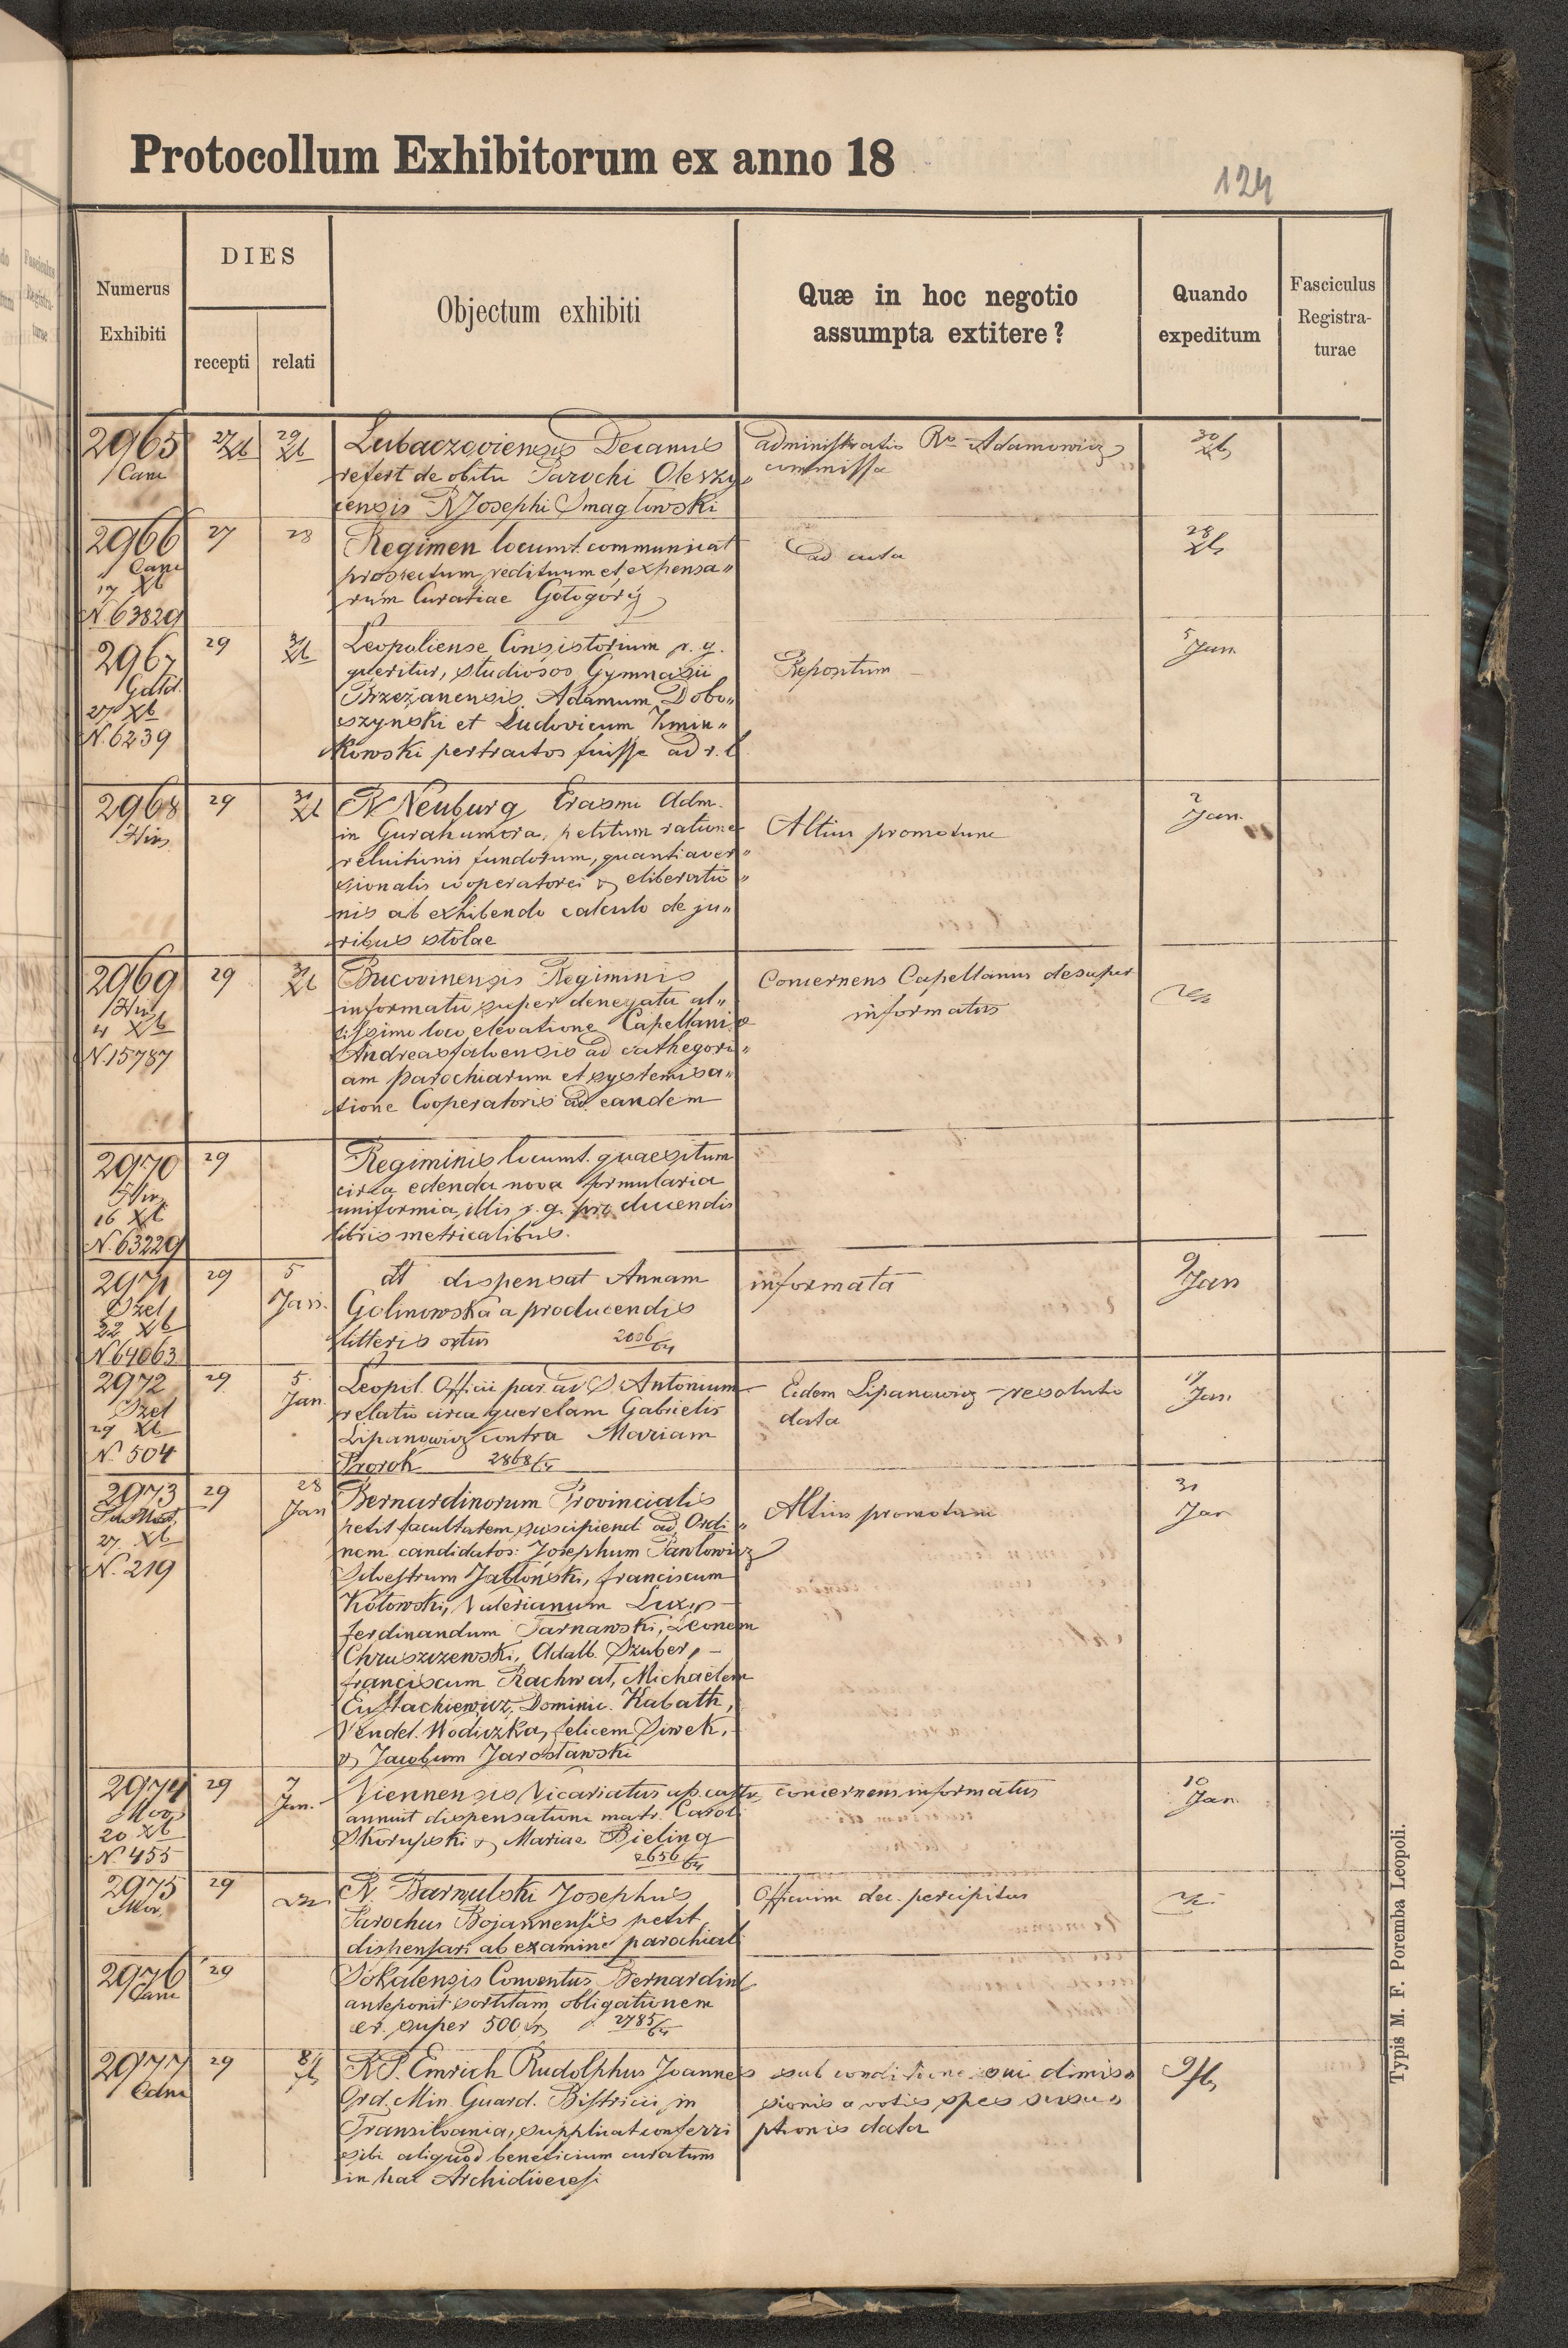 Protocollum Exhibitorum ex anno 18
124
Numerus Exhibiti
DIES
recepti relati
Objectum exhibiti
Quæ in hoc negotio assumpta extitere?
Quando expeditum
Fasciculus Registra-turae
2965 27 Xb 29 Xb Lubaczoviensis Decanus administratio Ro Adamowicz 30 Xb
Cam refert de obitu Parochi Oleszy„ commissa
censis R Josephi Smagłowski
2966 27 28 Regimen locumt. communicat ad acta 28 Xb
Cam prospectum redituum et expensa„
17 Xb rum Curatiae Gołogóry
N. 63829
2967 29 31 Xb Leopoliense Consistorium r. g. Repositum 5 Jan.
queritur, studiosos Gymnasii
27 Xb Brzezanensis Adamum Dobo„
N. 6239 szynski et Ludovicum
kowski pertractos fuisse ad r. l.
2968 29 31 Xb R Neuburg Erasmi Adm. Altius promotum 2 Jan.
Hirs in Gurahumora, petitum ratione
reluitionis fundorum, quanti aver„
sionalis cooperatorei & eliberatio„
nis ab exhibendo calculo de ju„
ribus stolae
2969 29 31 Xb Bucovinensis Regiminis Concernens Capellanus desuper
Hirs informatio super denegata al„ informatus
4 Xb tissimo loco elevatione Capellaniae
N. 15787 Andreasfalvensis ad cathegori„
am parochiarum et systemisa„
tione Cooperatoris ad eandem
2970 29 Regiminis locumt. quaesitum
Hirs circa edenda nova formularia
16 Xb uniformia, illis r. g. pro ducendis
N. 63229 libris metricalibus.
2971 29 5 Jan. dt dispensat Annam informata 9 Jan
Szel Golinowska a producendis
22 Xb litteris ortus 2006/64
N. 64063
2972 29 5 Jan. Leopol. Officii par. ad S. Antonium Eidem Lipanowicz resolutio 11 Jan.
Szel relatio circa querelam Gabrielis data
29 Xb Lipanowicz contra Mariam
N. 504 Prorok 2868/64
2973 29 28 Jan Bernardinorum Provincialis Altius promotum 31 Jan
petit facultatem suscipiend ad Ordi„
27 Xb nem candidatos: Josephum Pawlowicz
N. 219 Silvestrum Jabłoński, franciscum
Kotowski, Valerianum Lux,
ferdinandum Tarnawski, Leonem
Chruszczewski, Adalb. Szuber,
franciscum Rachwał, Michaelem
Eustachiewicz, Dominic. Kabath,
Vendel. Wodiczka, felicem Siwek,
& Jacobum Jarosławski
2974 29 7 Jan. Viennensis Vicariatus ap. castr. concernens informatus 10 Jan
Mor annuit dispensationi matr. Caroli
20 Xb Skorupski & Mariae Bieling
N. 455 2656/64
2975 29 R. Barnulski Josephus Officium dec. percipitur
Mor. Parochus Bojannensis petit
dispensari ab examine parochiali
2976 29 Sokalensis Conventus Bernardin
Cam anteponit sortitam obligationem
er. super 500 fr 2785/64
2977 29 R P. Emrich Rudolphus Joannes sub conditione sui dimis„
Cam Ord. Min. Guard. Bistricii in sionis a votis spes susce„
Transilvania, supplicat conferri ptionis data
sibi aliquod beneficium curatum
in hac Archidioecesi
Typis M. F. Poremba Leopoli.